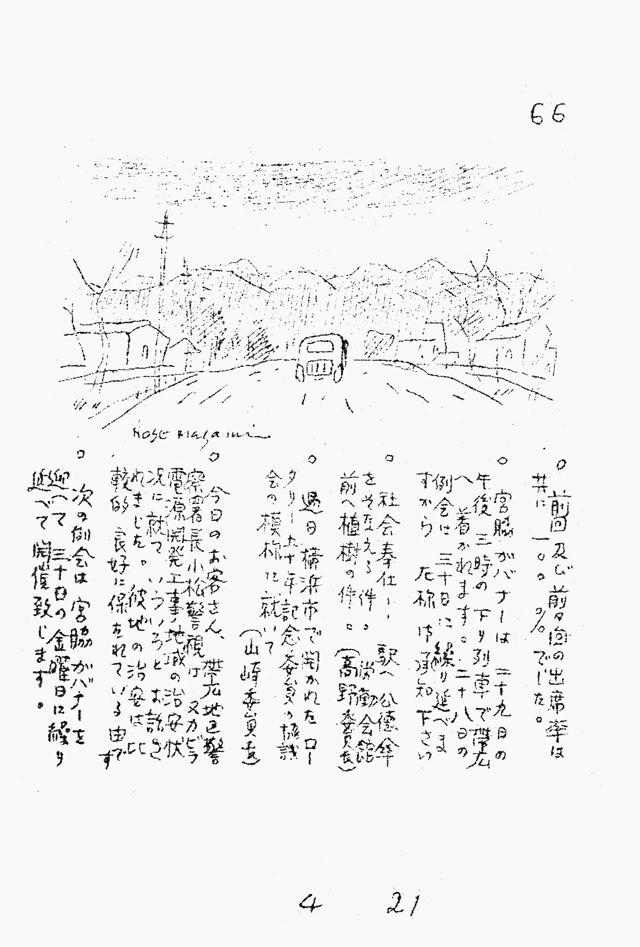 66
Nose Masami
○ 前回及び前々回の出席率は
共に一〇〇%でした。
○ 宮脇ガバナーは二十九日の
午後三時の下り列車で帯広
へ着かれます。二十八日の
例会は三十日に繰り延べま
すから 左様御承知下さい
○ 社会奉仕、駅へ公徳傘
をそなえる件。労働会館
前へ植樹の件。(高野委員長)
○ 過日横浜市で開かれたロー
タリー五十年記念委員の協議
会の模様に就いて
(山崎委員長)
○ 今日のお客さん、帯広地区警
察署長小松警視は ヌカビラ
電源開発工事地域の治安状
況に就ていろいろとお話さ
れました。彼地の治安は比
較的 良好に保たれている由です
○ 次の例会は宮脇ガバナーを
迎へて 三十日の金曜日に繰り
延べて開催致します。
4 21